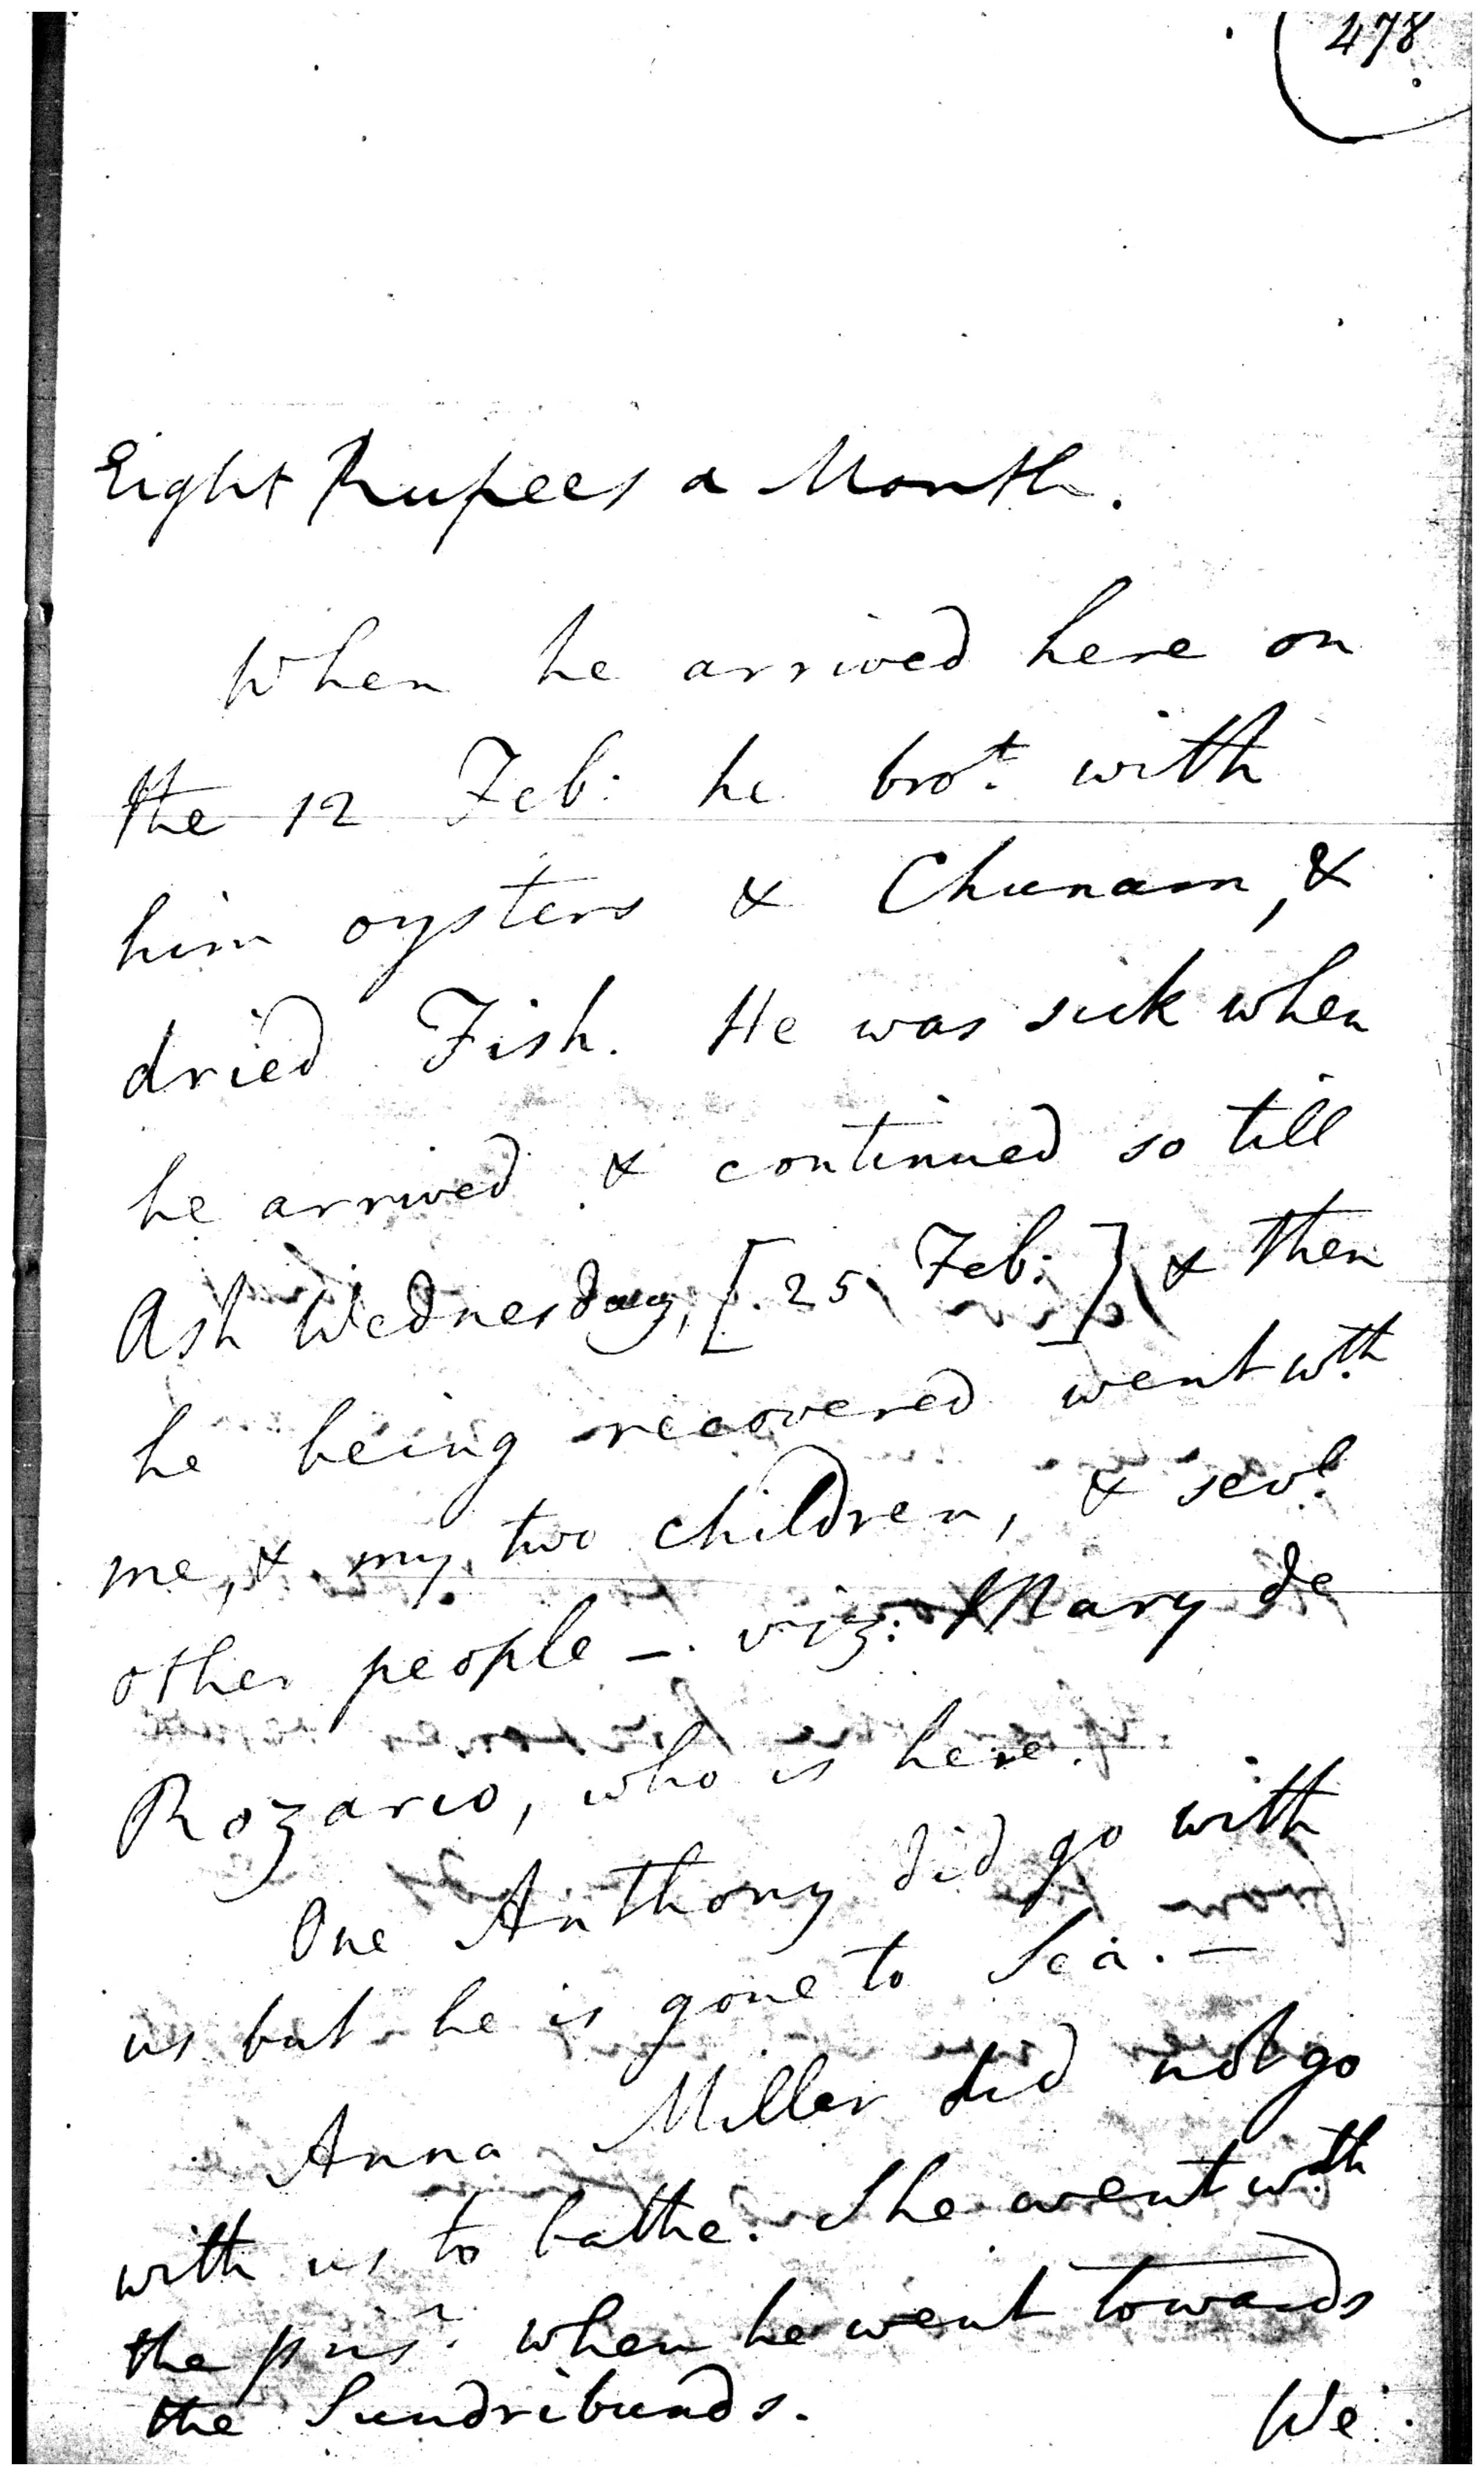 478
Eight Rupees a Month.
When he arrived here on
the 12 Feb: he brot. with
him oysters & Chunam, &
dried Fish. He was sick when
he arrived & continued so till
Ash Wednesday, [25 Feb:] & then
he being recovered went wth
me, & my two children, & sevl.
other people —. viz: Mary de
Rozario, who is here.
One Anthony did go with
us but he is gone to Sea. —
Anna Miller did not go
with us to bathe. She went wth
the prisr. when he went towards
the Sundribunds.
We